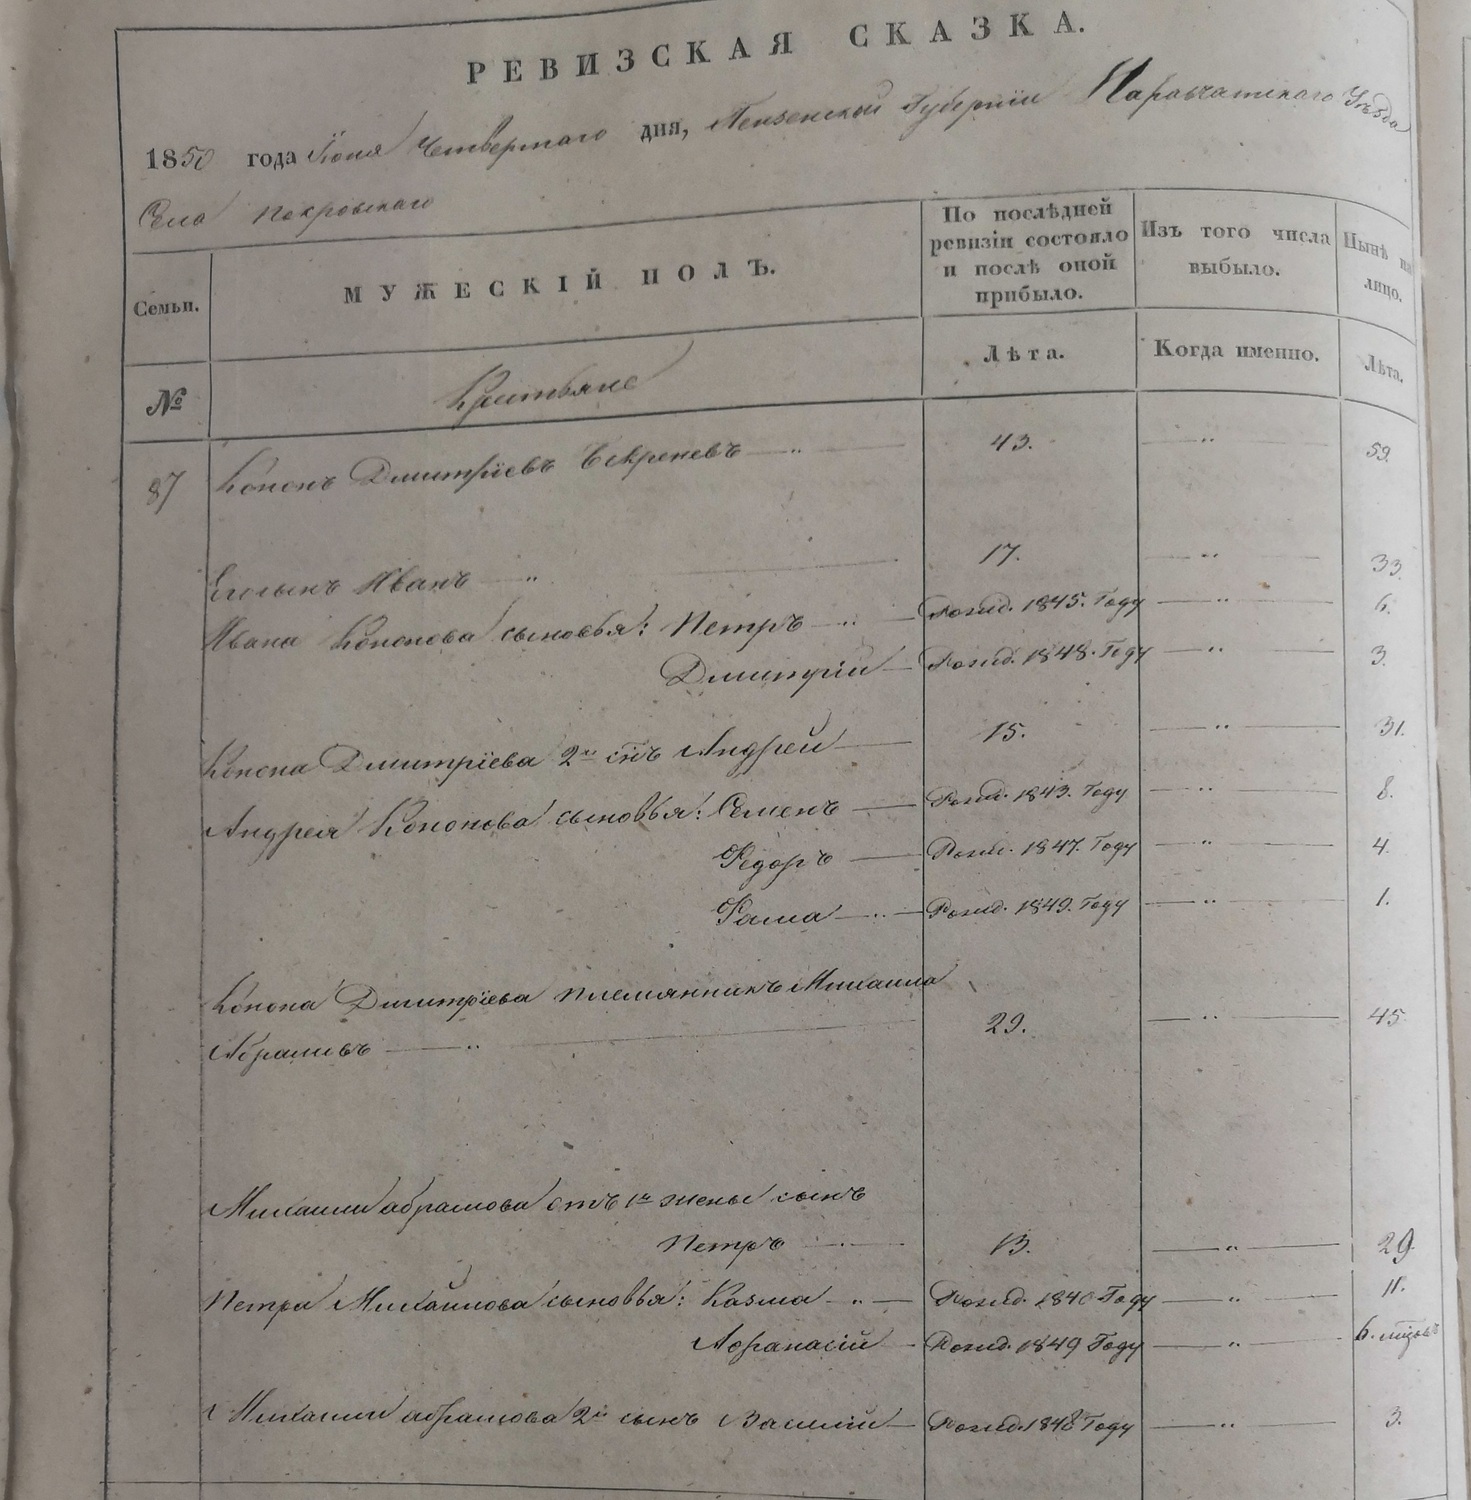 РЕВИЗСКАЯ СКАЗКА.
1850 года Іюня Четвертаго дня, Пензенской Губерніи Наровчатскаго Уѣзда
Села Покровскаго
Семьи. МУЖЕСКІЙ ПОЛЪ. По послѣдней ревизіи состояло и послѣ оной прибыло. Изъ того числа выбыло. Нынѣ на лицо.
№ Крестьяне Лѣта. Когда именно. Лѣта.
87 Кононъ Дмитріевъ 43. 59.
Егосынъ Иванъ 17. 33.
Ивана Кононова сыновья: Петръ Рожд. 1845. Году 6.
Дмитрій Рожд. 1848. Году 3.
Конона Дмитріева 2й сн̃ъ Андрей 15. 31.
Андрея Кононова сыновья: Семенъ Рожд. 1843. Году 8.
Федоръ Рожд. 1847. Году 4.
Фома Рожд. 1849. Году 1.
Конона Дмитріева племянникъ Михаила
Абрамовъ 29. 45.
Михаилы абрамова отъ 1й жены сынъ
Петръ 13. 29.
Петра Михайлова сыновья: Казма Рожд. 1840 Году 11.
Афанасій Рожд. 1849 Году 6. мцовъ
Михаилы абрамова 2й сынъ Василій Рожд. 1848 Году 3.